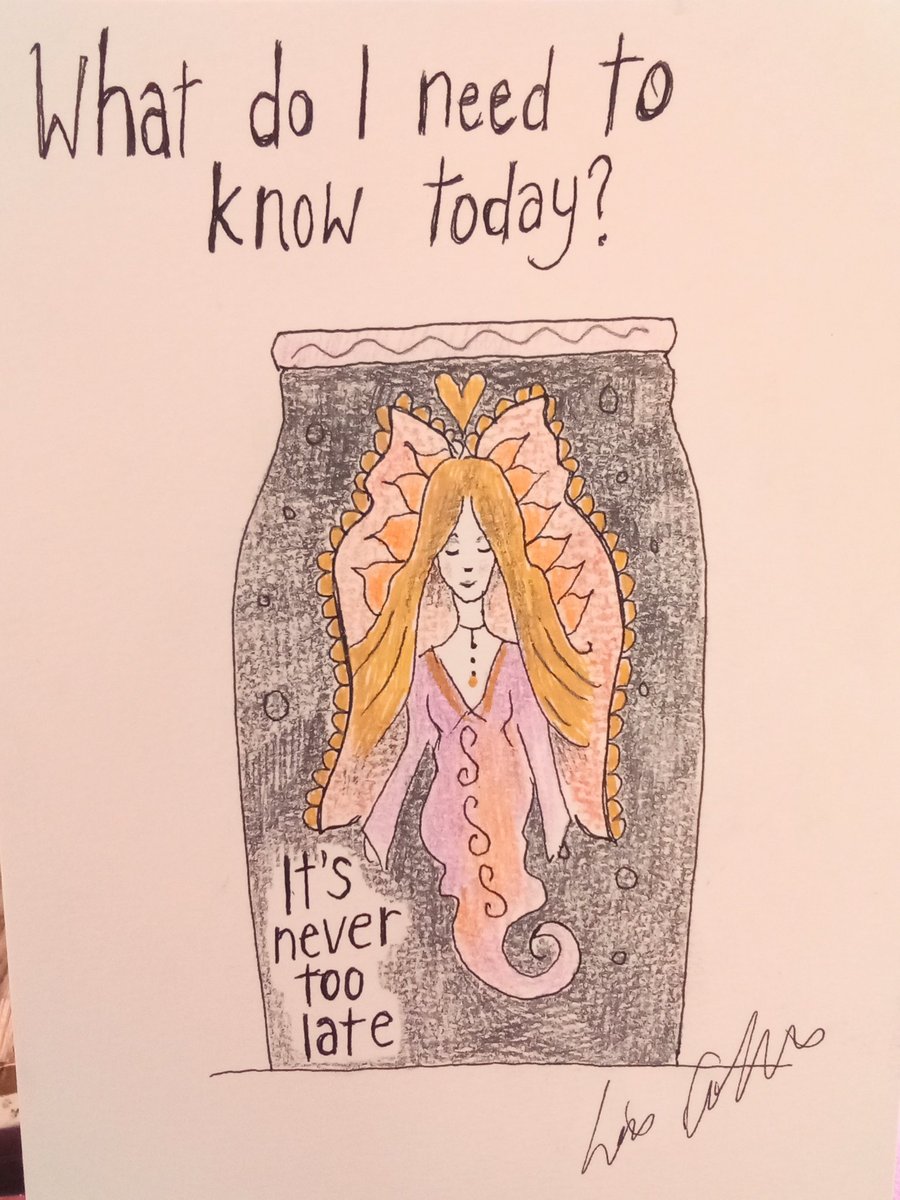 What do I need to
know today?
It's
never
too
late